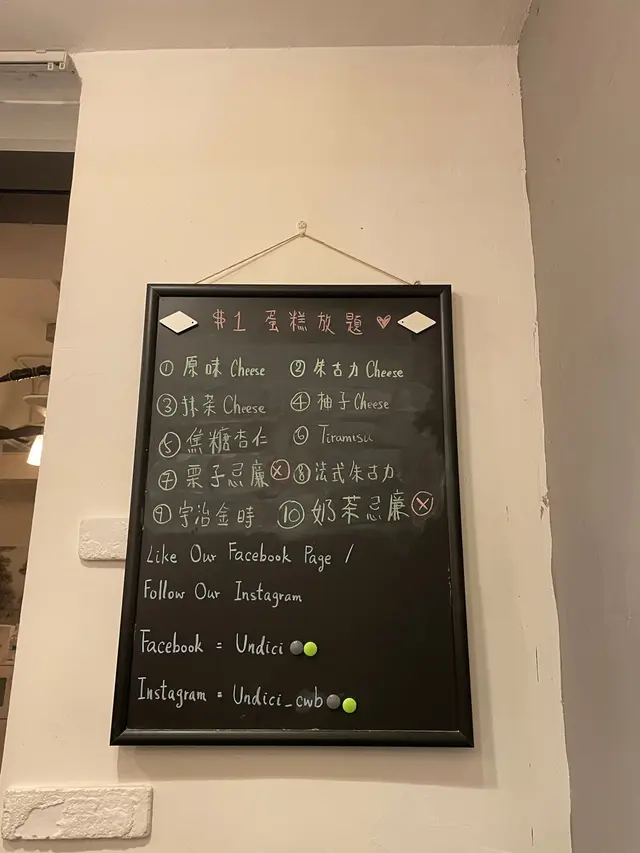 $1 蛋糕放題 ♥
① 原味 Cheese ② 朱古力 Cheese
③ 抹茶 Cheese ④ 柚子 Cheese
⑤ 焦糖杏仁 ⑥ Tiramisu
⑦ 栗子忌廉 ⓧ ⑧ 法式朱古力
⑨ 宇治金時 ⑩ 奶茶忌廉 ⓧ
Like Our Facebook Page /
Follow Our Instagram
Facebook = Undici
Instagram = Undici_cwb